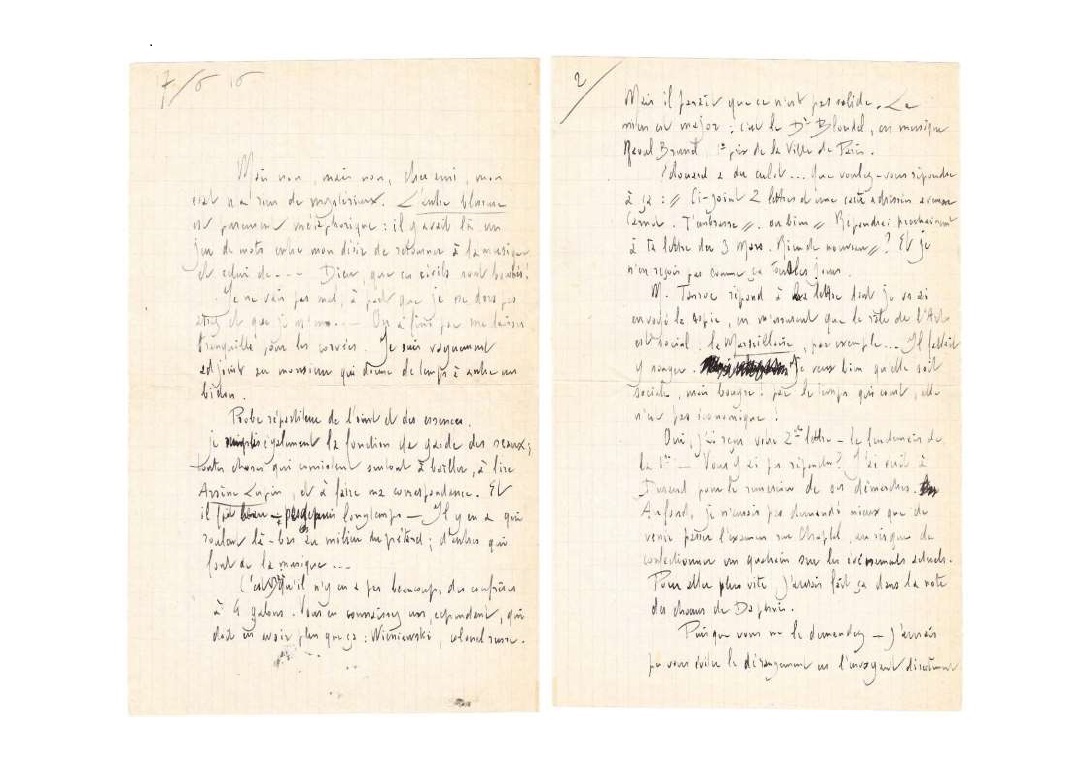 7/6 16
Mais non, mais non, cher ami, mon
est n'a rien de mystérieux. L'autre
est purement métaphorique : il y avait là un
jeu de mots entre mon désir de retourner à la musique
et celui de --- Dieu, que ces civils sont bouchés!
Je ne vais pas mal, à part que je ne dors pas
assez et que je .... On a fini par me laisser
tranquille pour les corvées. Je suis vaguement
adjoint au monsieur qui donne de temps à autre un
bidon.
Probe répartiteur de l'oint et des essences.
je également la fonction de garde des seaux;
toutes choses qui consistent surtout à bailler, à lire
Arsène Lupin, et à faire ma correspondance. Et
il depuis longtemps — Il y en a qui
roulent là-bas au milieu du ; d'autres qui
font de la musique ...
C'est qu'il n'y en a pas beaucoup, des confrères
à 4 galons. Vous en connaissez un, cependant, qui
doit en avoir plus que ça : Wisniewski, colonel russe.
2
Mais il paraît que ce n'est pas solide. Le
mien est major : c'est le Dr Blondel, en musique
Raval Brunel, 1er prix de la Ville de Paris.
Edouard a du culot ... Que voulez-vous répondre
à ça : " Ci-joint 2 lettres d'une adressées
Carnot. T'embrasse ". ou bien " Répondrai prochainement
à ta lettre du 3 Mars. Rien de nouveau "? Et je
n'en reçois pas comme ça tous les jours.
M. Tenroc répond à la lettre dont je vous ai
envoyé la copie, en m'assurant que le rôle de l'Art
est social : la Marseillaise, par exemple ... Il fallait
y songer. Je veux bien qu'elle soit
sociale, mais bougre ! par le temps qui court, elle
n'est pas économique !
Oui, j'ai reçu votre 2de lettre – le lendemain de
la 1re – Vous y ai pas répondu? J'ai écrit à
Durand pour le remercier de ses démarches.
Au fond, je n'aurais pas demandé mieux que de
venir passer l'examen rue Chaptal, au risque de
confectionner un quatrain sur les événements actuels.
Pour aller plus vite, j'aurais fait ça dans la note
du chœur de Daphnis.
Puisque vous me le demandez – j'aurais
pu vous éviter le dérangement en l'envoyant directement